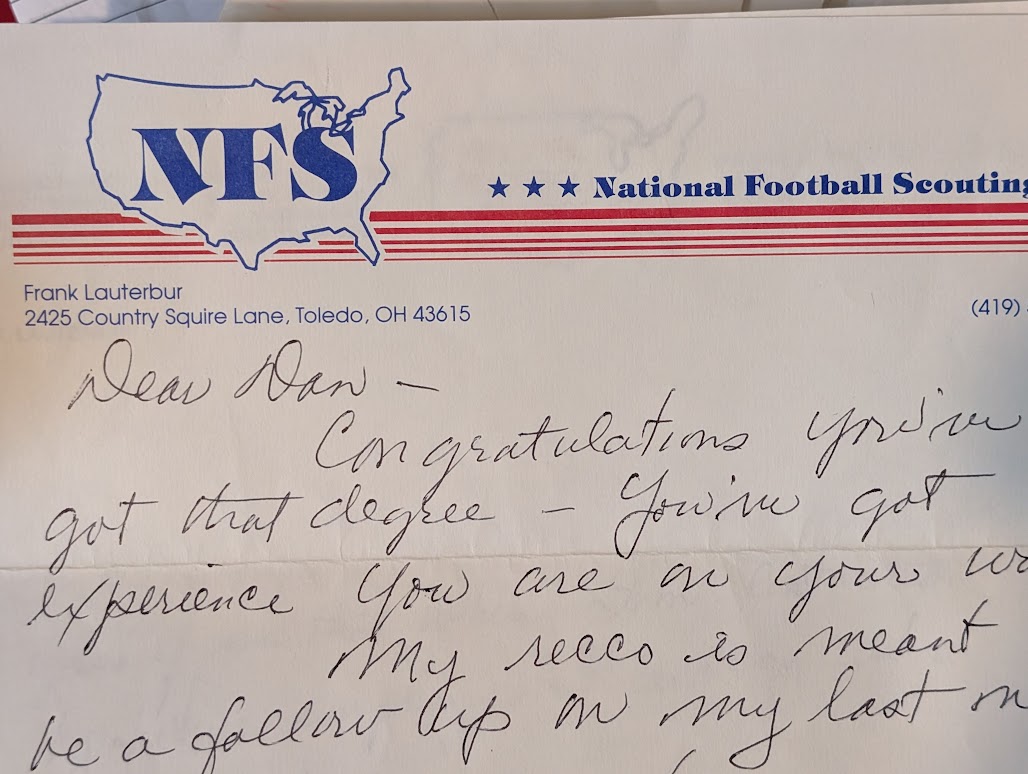 NFS
★ ★ ★ National Football Scouting
Frank Lauterbur
2425 Country Squire Lane, Toledo, OH 43615
(419)
Dear Dan —
Congratulations you've
got that degree — You've got
experience you are on your
My recco is meant
be a follow up on my last